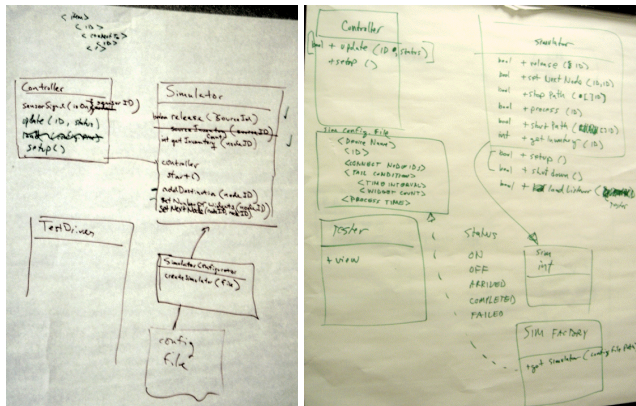 < item>
< ID>
<
<ID>
Controller
update (ID, status)
setup ()
Simulator
release (SourceInt)
Source Inventory (sourceID)
int get Inventory (nodeID)
controller
start()
addDestination (nodeID)
get Number Of Widgets (nodeID)
SetNextNode (nodeID, nodeID)
TestDriver
SimulatorConfigurator
createSimulator (file)
config
file
Controller
bool + update (ID, status)
+setup ()
Simulator
bool + release (ID)
bool + set Next Node (ID, ID)
bool + stop Path (ID)
bool + process (ID)
bool + start Path (ID)
int + get Inventory (ID)
bool + setup ()
bool + shut down ()
bool + load Listener (
Tester
Sim Config File
<Device Name>
<ID>
<CONNECT NODE IDs>
<FAIL CONDITION>
<TIME INTERVAL>
<WIDGET COUNT>
<PROCESS TIME>
Tester
+ view
Status
ON
OFF
ARRIVED
COMPLETED
FAILED
Sim
int
SIM FACTORY
+get simulator (config file path)